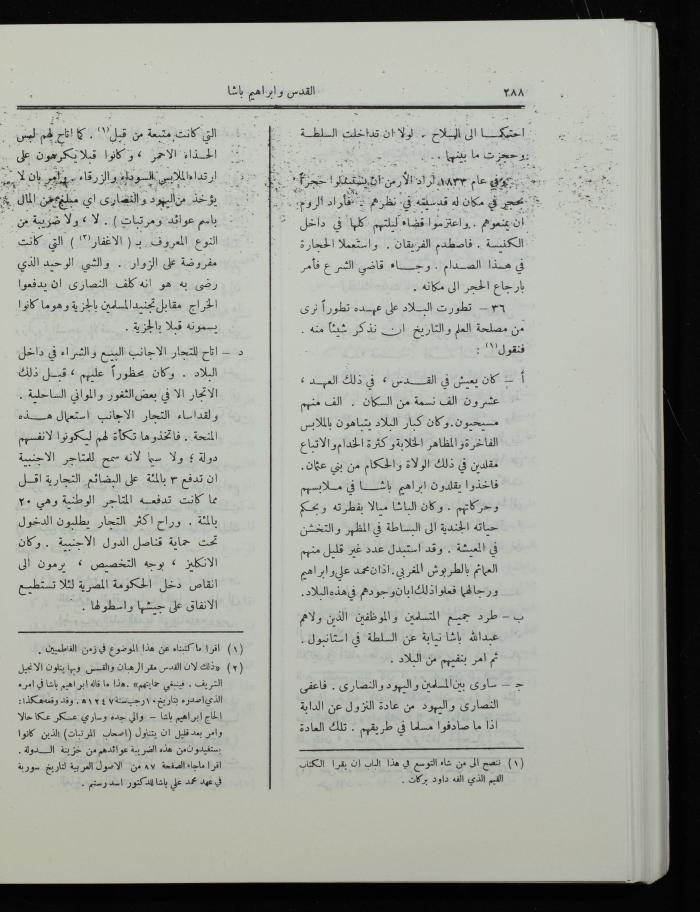 ٢٨٨
القدس وابراهيم باشا
احتكمـــا الى السلاح . لولا ان تداخلت السلطة
وحجزت ما بينهما . .
وفي عام ١٨٣٣ أراد الأرمن ان يستبدلوا حجراً
بحجر في مكان له قدسيته في نظرهم . فأراد الروم
ان يمنعوهم . واعتزموا قضاء ليلتهم كلها في داخل
الكنيسة . فاصطدم الفريقان . واستعملا الحجارة
في هــذا الصدام . وجــاء قاضي الشرع فأمر
بارجاع الحجر الى مكانه .
٣٦ – تطورت البـلاد على عهـده تطوراً نرى
من مصلحة العلم والتاريخ ان نذكر شيئاً منه .
فنقول (١) :
أ – كان يعيش في القـدس ، في ذلك العهـد ،
عشرون الف نسمة من السكان . الف منهم
مسيحيون . وكان كبار البلاد يتباهون بالملابس
الفاخرة والمظاهر الخلابة وكثرة الخدام والاتباع
مقلدين في ذلك الولاة والحكام من بني عثمان .
فاخذوا يقلدون ابراهيم باشــا في ملابسهم
وحركاتهم . وكان الباشا ميالا بفطرته وبحكم
حياته الجندية الى البساطة في المظهر والتخشن
في المعيشة . وقد استبدل عدد غير قليل منهم
العمائم بالطربوش المغربي . اذ ان محمد علي وابراهيم
ورجالهما فعلوا ذلك ابان وجودهم في هذه البلاد .
ب – طرد جميع المتسلمين والموظفين الذين ولاهم
عبدالله باشا نيابة عن السلطة في استانبول .
ثم امر بنفيهم من البلاد .
جـ – ساوى بين المسلمين واليهود والنصارى . فاعفى
النصارى واليهود من عادة النزول عن الدابة
اذا ما صادفوا مسلما في طريقهم . تلك العادة
(١) ننصح الى من شاء التوسع في هذا الباب ان يقرا الكتاب
القيم الذي الفه داود بركات .
التي كانت متبعة من قبل (١) . كما اتاح لهم لبس
الحــذاء الاحمر ، وكانوا قبلا يكرهون على
ارتداء الملابس السوداء والزرقاء . وامر بان لا
يؤخذ من اليهود والنصارى اي مبلغ من المال
باسم عوائد ومرتبات ) . لا ، ولا ضريبة من
النوع المعروف بـ ( الاغفار (٢) ) التي كانت
مفروضة على الزوار . والشي الوحيد الذي
رضى به هو انه كلف النصارى ان يدفعوا
الخراج مقابل تجنيد المسلمين بالجزية وهو ما كانوا
يسمونه قبلا بالجزية .
د – اتاح للتجار الاجانب البيـع والشراء في داخل
البلاد . وكان محظوراً عليهم ، قبـل ذلك
الاتجار الا في بعض الثغور والمواني الساحلية .
ولقد اساء التجار الاجانب استعمال هــذه
المنحة . فاتخذوها تكأة لهم ليكونوا لانفسهم
دولة ؛ ولا سيما لانه سمح للمتاجر الاجنبية
ان تدفع ٣ بالمئة على البضائع التجارية اقـل
مما كانت تدفعـه المتاجر الوطنية وهي ٢٠
بالمئة . وراح اكثر التجار يطلبون الدخول
تحت حماية قناصل الدول الاجنبية . وكان
الانكليز ، بوجه التخصيص ، يرمون الى
انقاص دخل الحكومة المصرية لئلا تستطيع
الانفاق على جيشها واسطولها .
(١) اقرا ما كتبناه عن هذا الموضوع في زمن الفاطميين .
(٢) «ذلك لان القدس مقر الرهبان والقسس وبها يتلون الانجيل
الشريف . فينبغي حمايتهم» . هذا ما قاله ابراهيم باشا في امره
الذي اصدره بتاريخ ١٠ رجب سنة ١٢٤٧ هـ . وقد وقعه هكذا :
الحاج ابراهيم باشا – والي جده وساري عسكر عكا حالا
وامر بعد قليل ان يتناول (اصحاب المرتبات) الذين كانوا
يستفيدون من هذه الضريبة عوائدهم من خزينة الــدولة .
اقرا ما جاء الصفحة ٨٧ من الاصول العربية لتاريخ سورية
في عهد محمد علي باشا للدكتور اسد رستم .